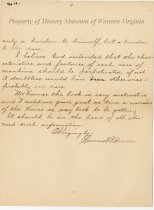 Property of History Museum of Western Virginia
only a burden to himself, but a burden
to the race.
I believe God intended that the char-
acteristics and features of each race of
mankind should be perpetuated, if not
it doubtless would have been otherwise
probably one race.
the book is very instructive
and I suppose gives just as true a narrative
of the times as any book to be gotten.
It should be in the hand of all who
need such information.